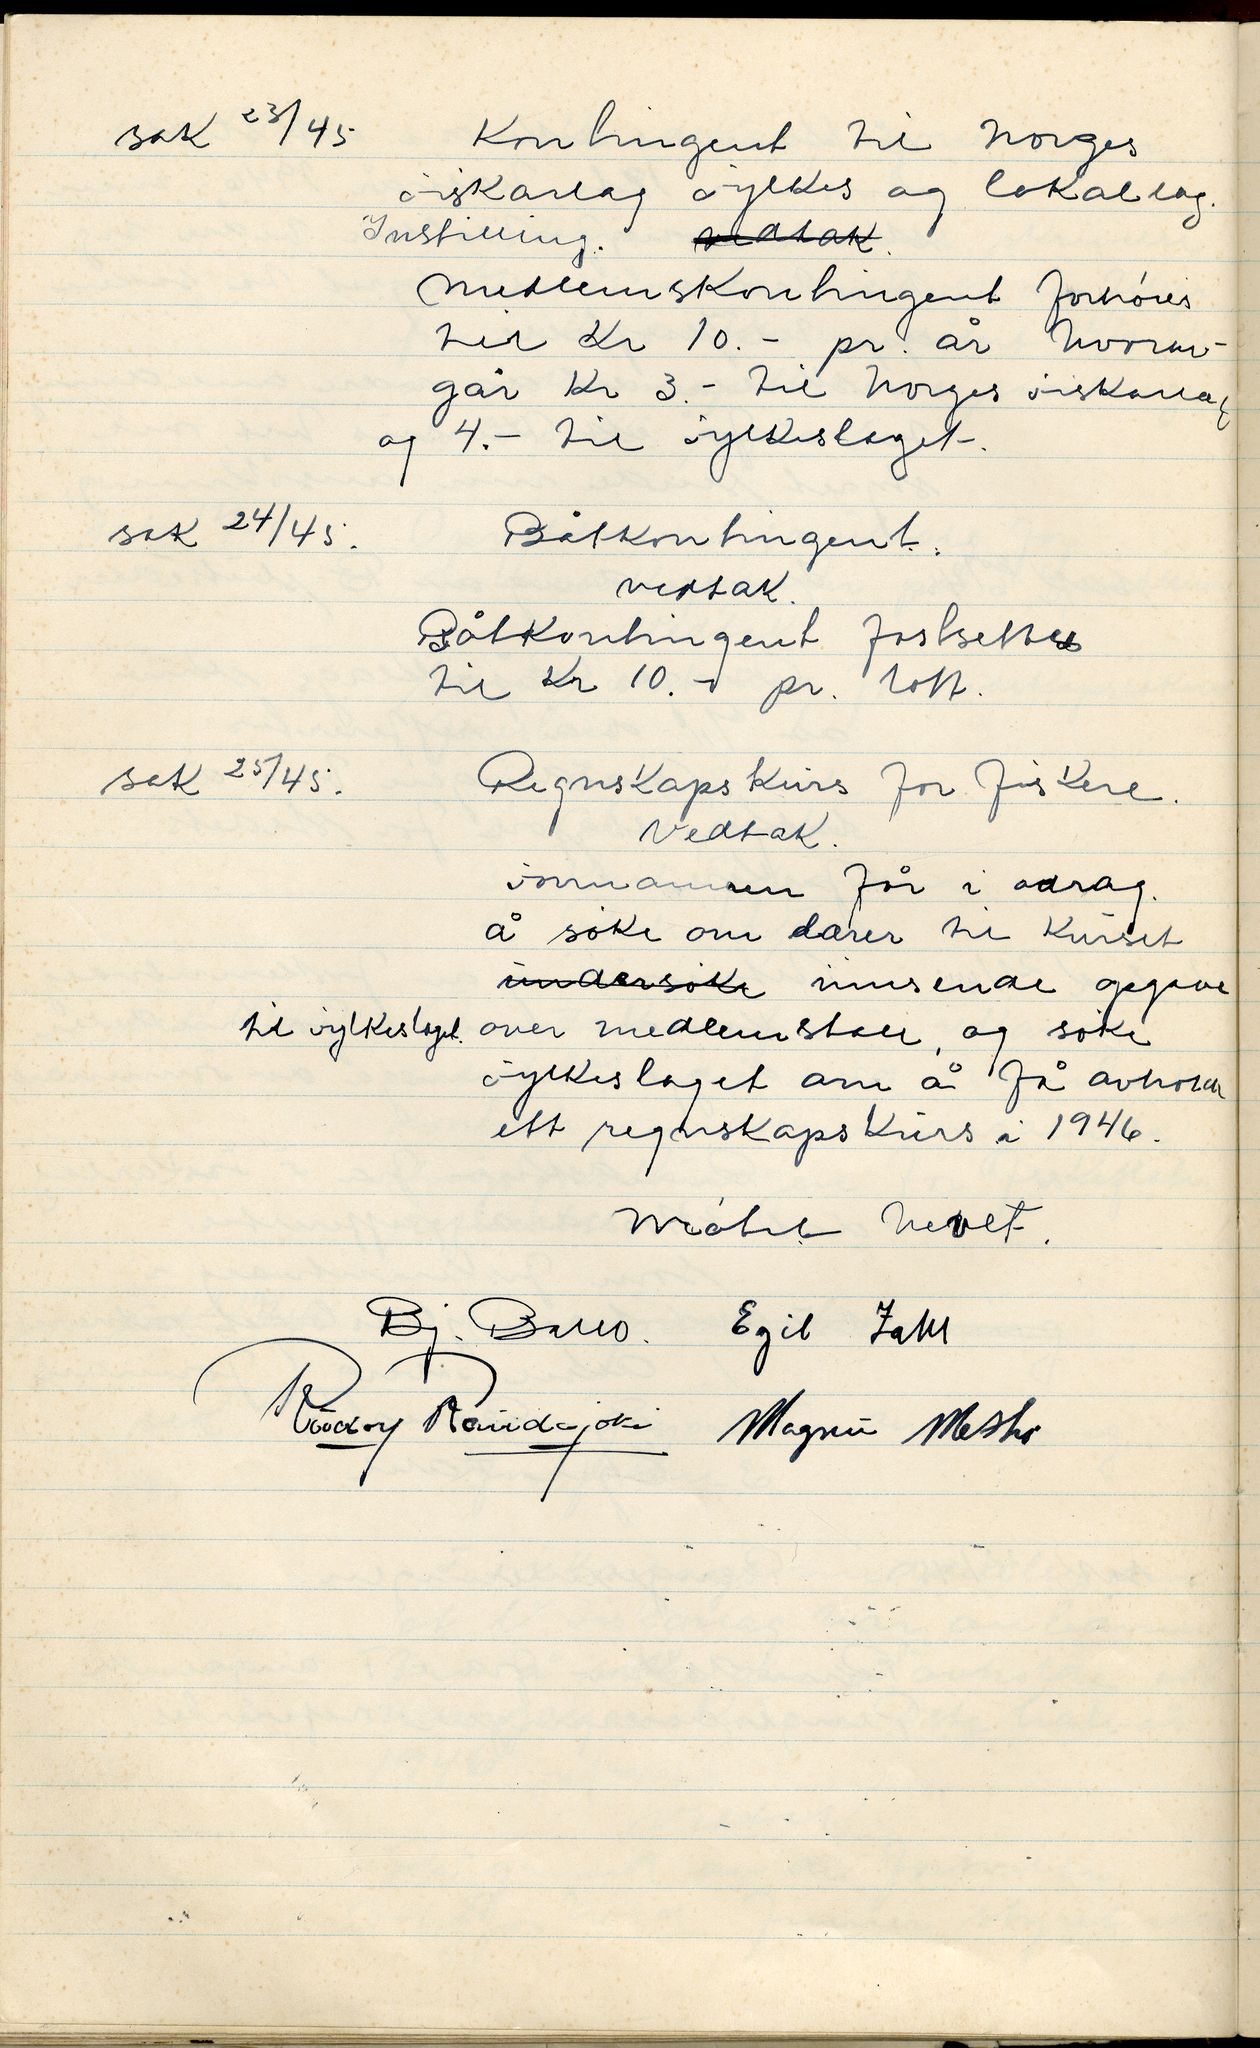 sak 23/45 Kontingent til Norges
fiskarlag fylkes og lokallag.
Instilling. vedtak.
Medlemskontingent forhöies
til Kr 10.- pr. år hvorav
går Kr 3.- til Norges fiskarlag
og 4.- til fylkeslaget.
sak 24/45. Båtkontingent.
vedtak.
Båtkontingent fastsettes
til Kr 10.- pr. lott.
sak 25/45. Regnskapskurs for fiskere.
Vedtak.
formannen får i odrag.
å söke om lærer til kurset
undersöke innsende opgave
til fylkeslaget. over medlemstall, og söke
fylkeslaget om å få avholdt
ett regnskapskurs i 1946.
Mötet hevet.
Bj. Ballo. Egil Zahl
Magnus